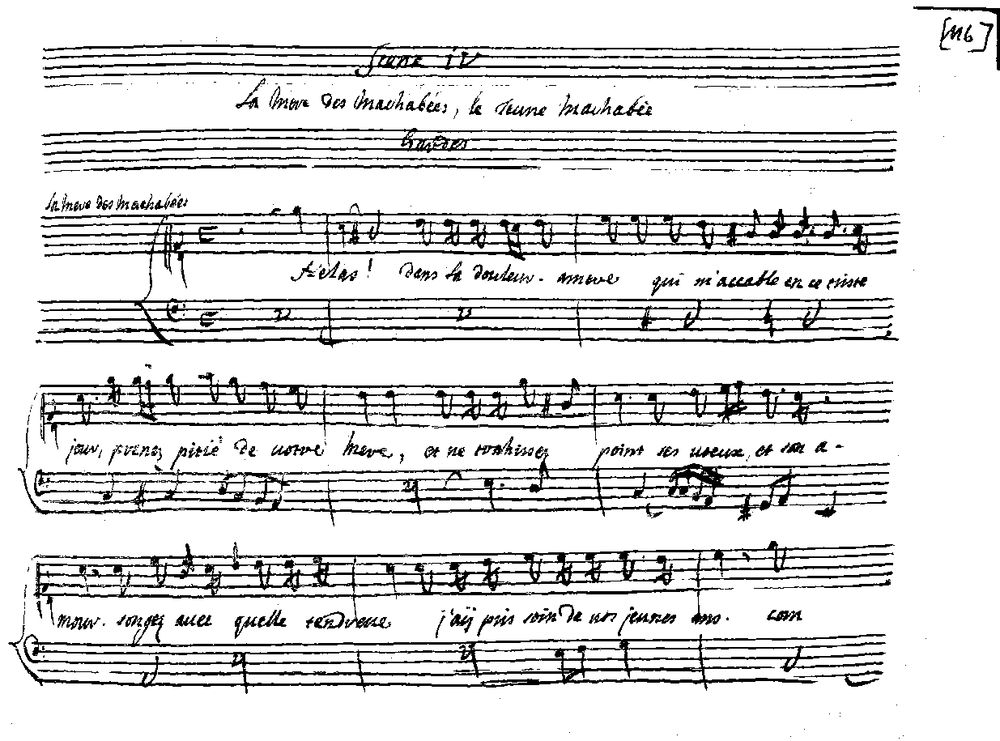 [116]
Scene IV
La mere des machabées, le Jeune machabée
Gardes
La mere des machabées
helas! dans la douleur. amere qui m'accable en ce triste
jour, prenez pitié de votre mere, et ne trahissez point ses voeux, et son a-
mour. songez avec quelle tendresse j'aÿ pris soin de vos jeunes ans. com